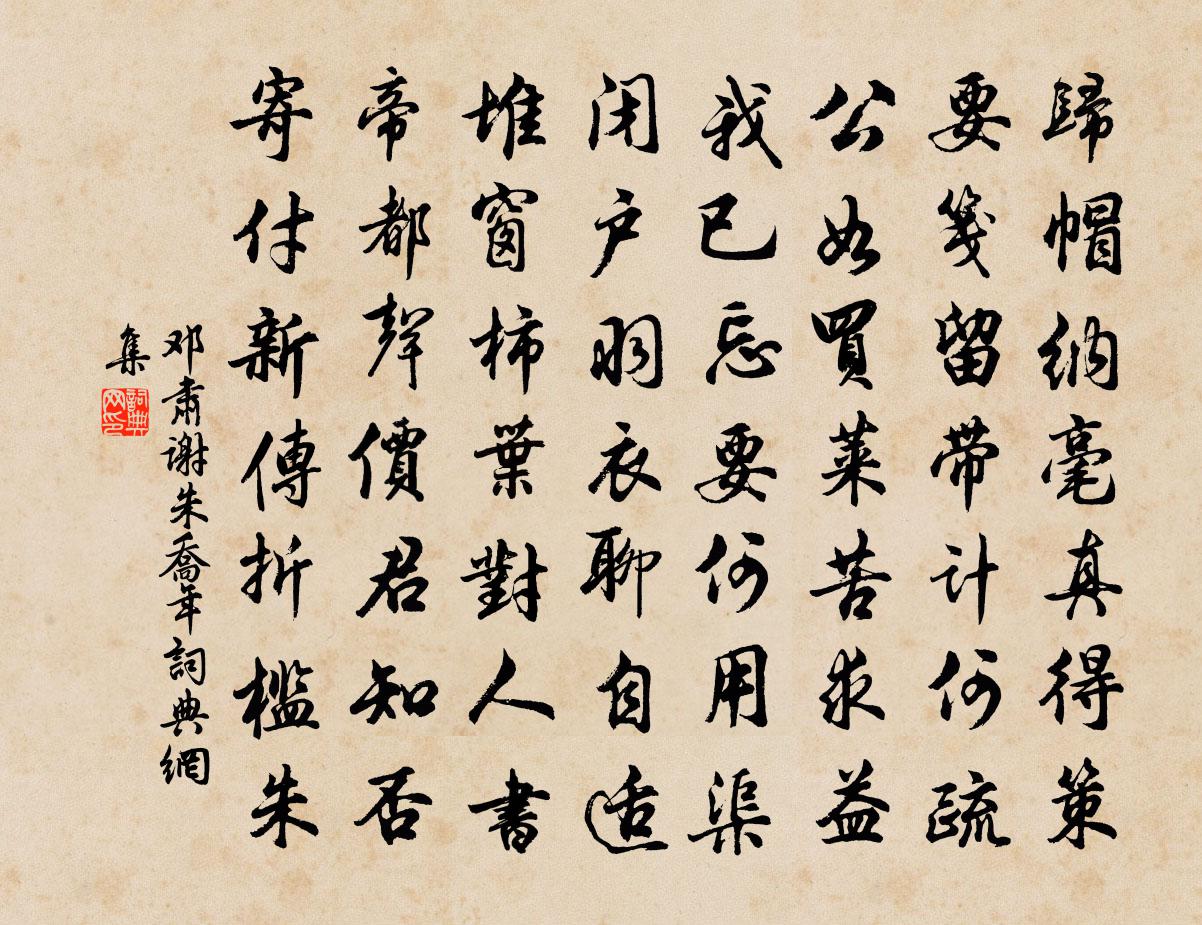 歸帽納毫真得策
要箋留帶計何疏
公如買菜苦求益
我已忘要何用渠
閉户羽衣聊自适
堆窗柿葉對人書
帝都聲價君知否
寄付新傳折檻朱
邓肅谢朱喬年詞典網
集
詞典網印